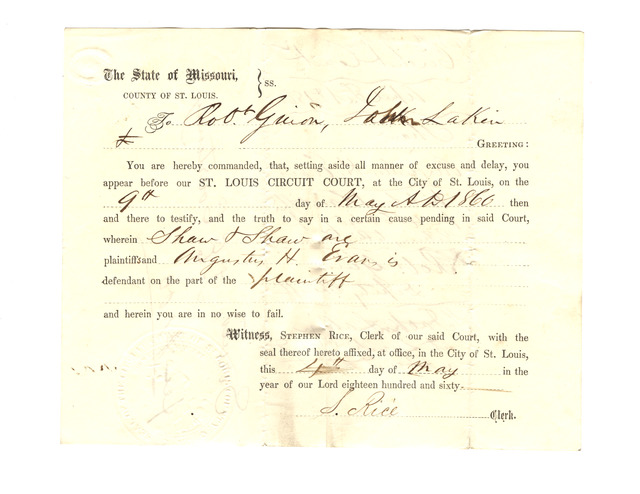 The State of Missouri, } ss.
COUNTY OF ST. LOUIS.
To Robt. Guion, John Lakin
GREETING:
You are hereby commanded, that, setting aside all manner of excuse and delay, you
appear before our ST. LOUIS CIRCUIT COURT, at the City of St. Louis, on the
9th day of May A.D. 1860 then
and there to testify, and the truth to say in a certain cause pending in said Court,
wherein Shaw & Shaw are
plaintiffs and Augustus H. Evans is
defendant on the part of the plaintiff
and herein you are in no wise to fail.
Witness, STEPHEN RICE, Clerk of our said Court, with the
seal thereof hereto affixed, at office, in the City of St. Louis,
this 4th day of May in the
year of our Lord eighteen hundred and sixty
S. Rice Clerk.